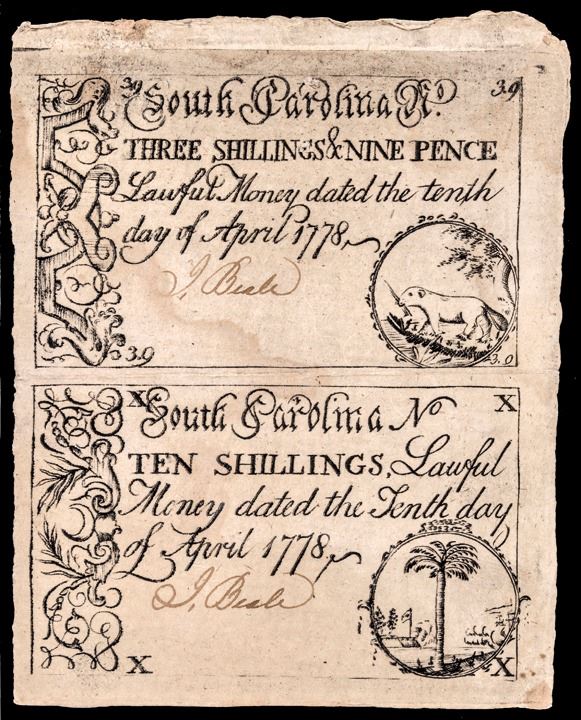 3.9 South Carolina No. 3.9
THREE SHILLINGS & NINE PENCE
Lawful Money dated the tenth
day of April 1778,
J. Beale
3.9 3.9
X South Carolina No X
TEN SHILLINGS, Lawful
Money dated the Tenth day
of April 1778,
J. Beale
X X